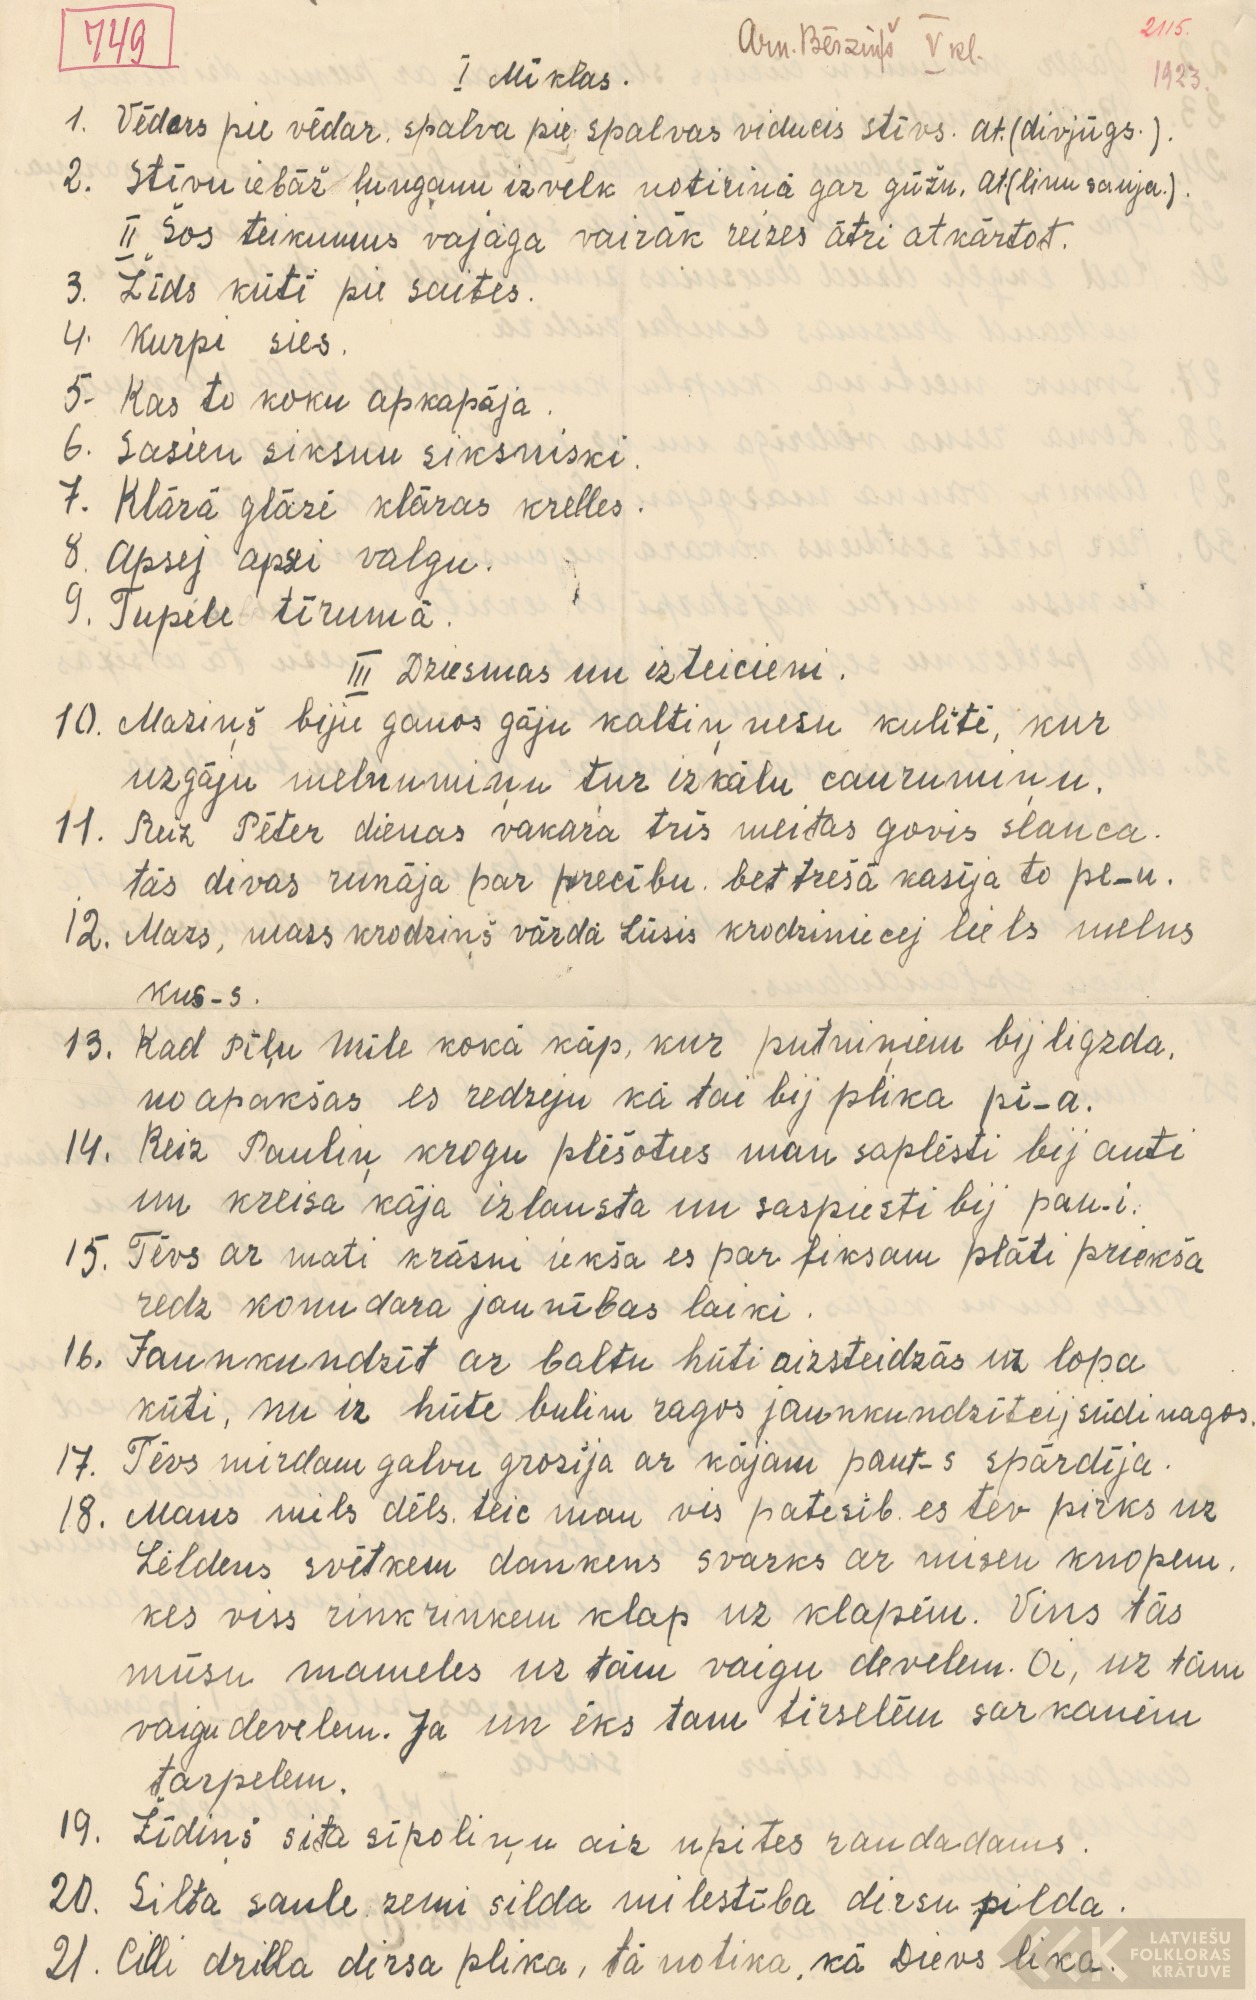 749
Arn. Bērziņš V kl.
2115.
1923.
I Mīklas.
1. Vēders pie vēdar, spalva pie spalvas viducis stīvs. at.(divjūgs.).
2. Stīvu iebāž ļunganu izvelk notirina gar gūžu. at.(linu sauja.).
II Šos teikumus vajaga vairāk reizes ātri atkārtot.
3. Žīds kūtī pie saites.
4. Kurpi sies.
5. Kas to koku apkapāja.
6. Sasien siksnu siksniski.
7. Klārā glāzē klāras krelles.
8. Apsej apsei valgu.
9. Tupele tīrumā.
III Dziesmas un izteicieni.
10. Maziņš biju ganos gāju kaltiņ nesu kulītē, kur
uzgāju melnumiņu tur izkalu caurumiņu.
11. Reiz Pēter dienas vakara trīs meitas govis slauca.
tās divas runāja par precību. bet trešā kasīja to pe-u.
12. Mazs, mazs krodziņš vārdā Lūsis krodziniecej liels melns
kus-s.
13. Kad Pīļu Mīle kokā kāp, kur putniņiem bij ligzda,
no apakšas es redzeju kā tai bij plika pi-a.
14. Reiz Pauliņ krogu plēšoties man saplēsti bij auti
un kreisa kāja izlausta un saspiesti bij pau-i.
15. Tēvs ar mati krāsni iekša es par fiksam plāti priekša
redz konu dara jaunības laiki.
16. Jaunkundzīt ar baltu hūti aizsteidzās uz lopa
kūti, nu iz hūte bulim ragos jaunkundzīteij sūdi nagos.
17. Tēvs mirdam galvu grozīja ar kājam paut-s spārdīja.
18. Mans mils dēls. teic man vis patesib. es tev pirks uz
Leldens svētkem dankens svarks ar misen knopem.
kes viss rinkrinkem klap uz klapēm. Vins tās
mūsu mameles uz tām vaigu develem. Oi, uz tām
vaigu develem. Ja un ēks tam tirselēm sarkanēm
tarpelem.
19. Žīdiņš sita sīpoliņu aiz upites raudadams.
20. Silta saule zemi silda milestība dirsu pilda.
21. Cilli drilla dirsa plika, tā notika, kā Dievs lika.
LATVIEŠU
FOLKLORAS
KRĀTUVE